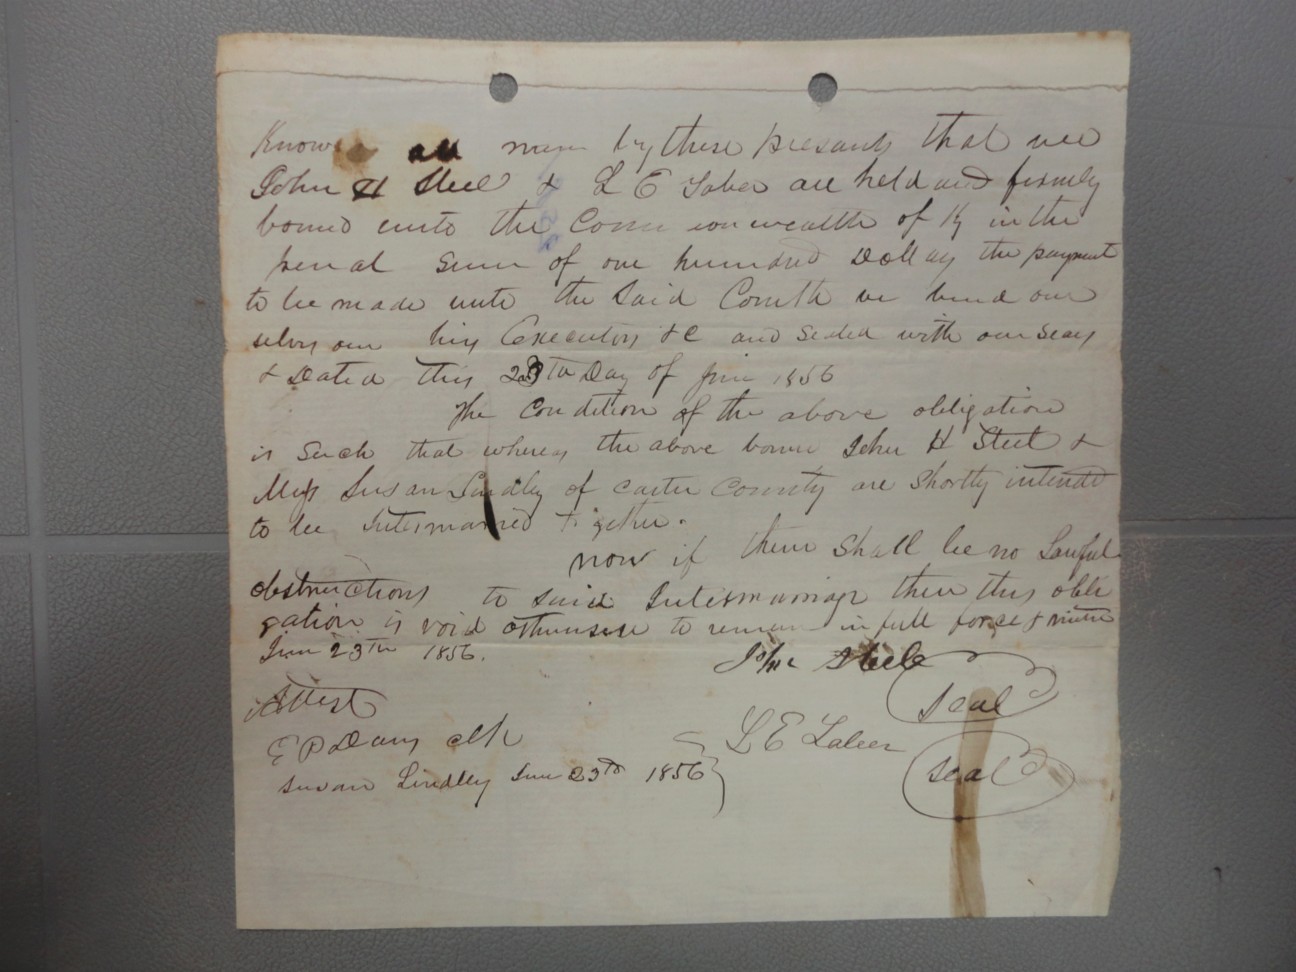 Know all men by these presents that we
John H Steel & L E Taber are held and firmly
bound unto the Commonwealth of Ky in the
penal sum of one hundred Dollars the payment
to be made unto the Said Comlth we bind our
selvs our hirs Executors &C and sealed with our seals
& Dated this 23th Day of June 1856
The Condition of the above obligation
is Such that whereas the above boun John H Steel &
Miss Susan Lindley of Carter County are Shortly intended
to be Intermarried together.
now if there Shall be no Lawful
obstructions to said Intermarriage then this obli
gation is void otherwise to remain in full force & virtue
June 23th 1856.
John Steele Seal
Attest
E P Davis clk
L E Taber Seal
Susan Lindley June 23th 1856